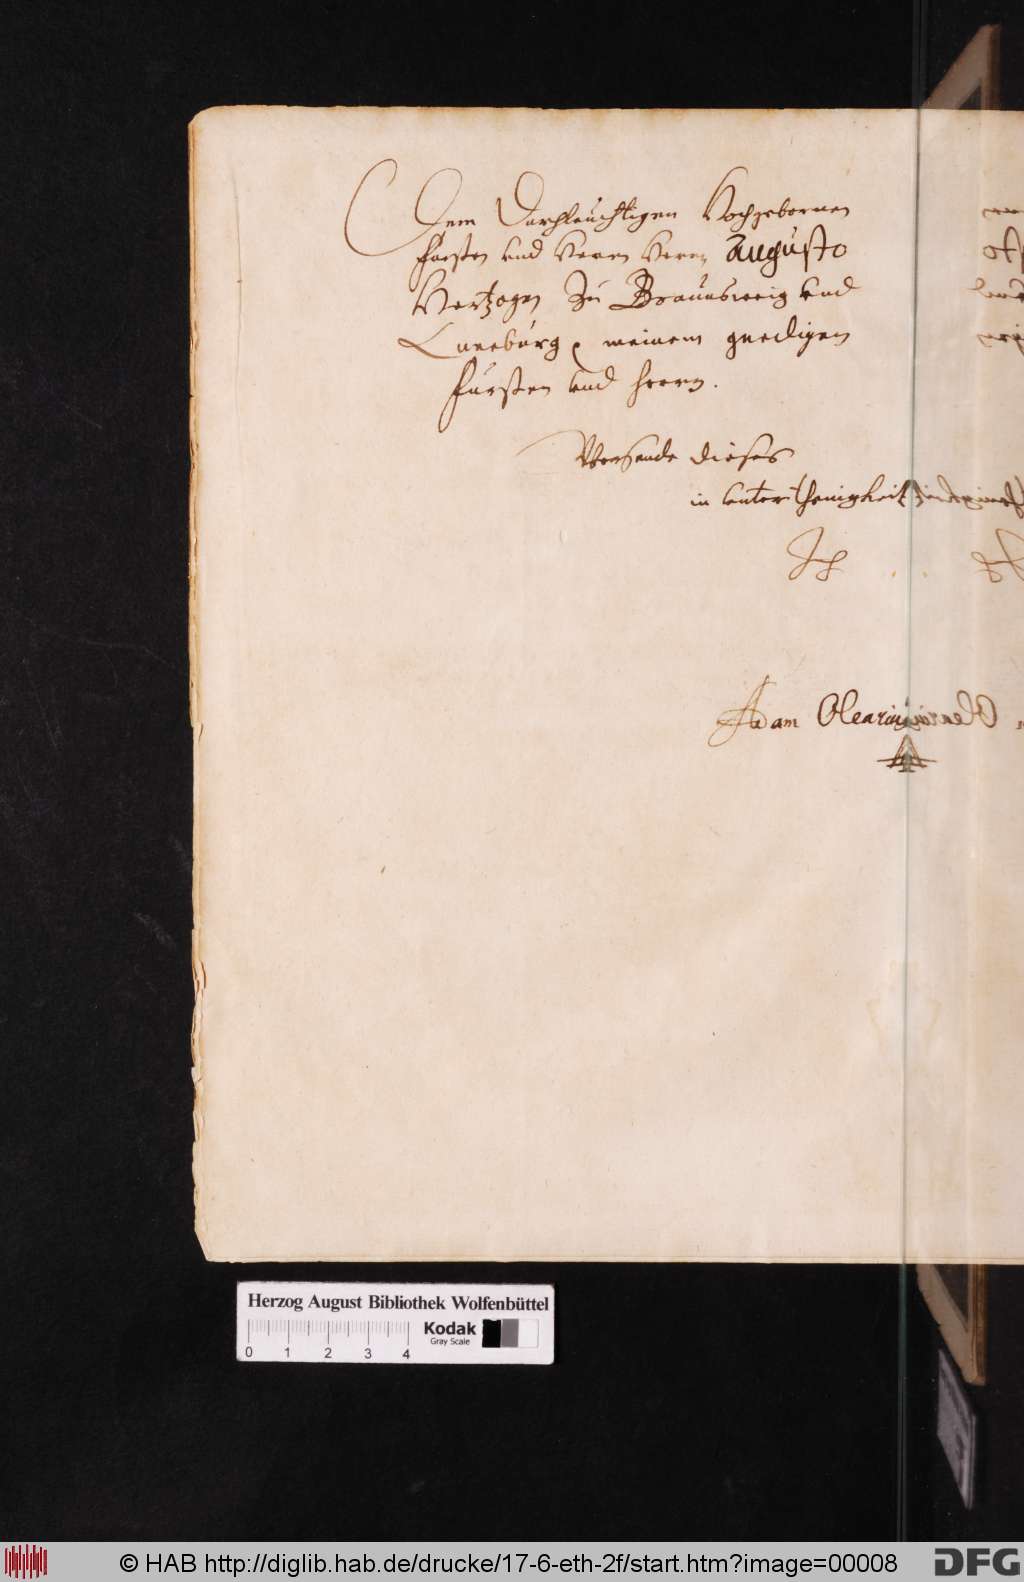 Dem Durchleuchtigen Hochgebornen
Fürsten vnd Herrn Herrn Augusto
Hertzogen Zu Braunsweig vnd
Luneburg, meinem gnedigen
Fürsten vnd Herrn.
Vbersende dieses
in vnterthenigkeit
Adam Olearius
Herzog August Bibliothek Wolfenbüttel
Kodak
Gray Scale
0 1 2 3 4
© HAB http://diglib.hab.de/drucke/17-6-eth-2f/start.htm?image=00008
DFG